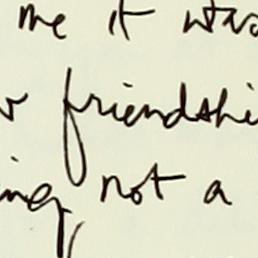 me it was
r friendshi
ing not a